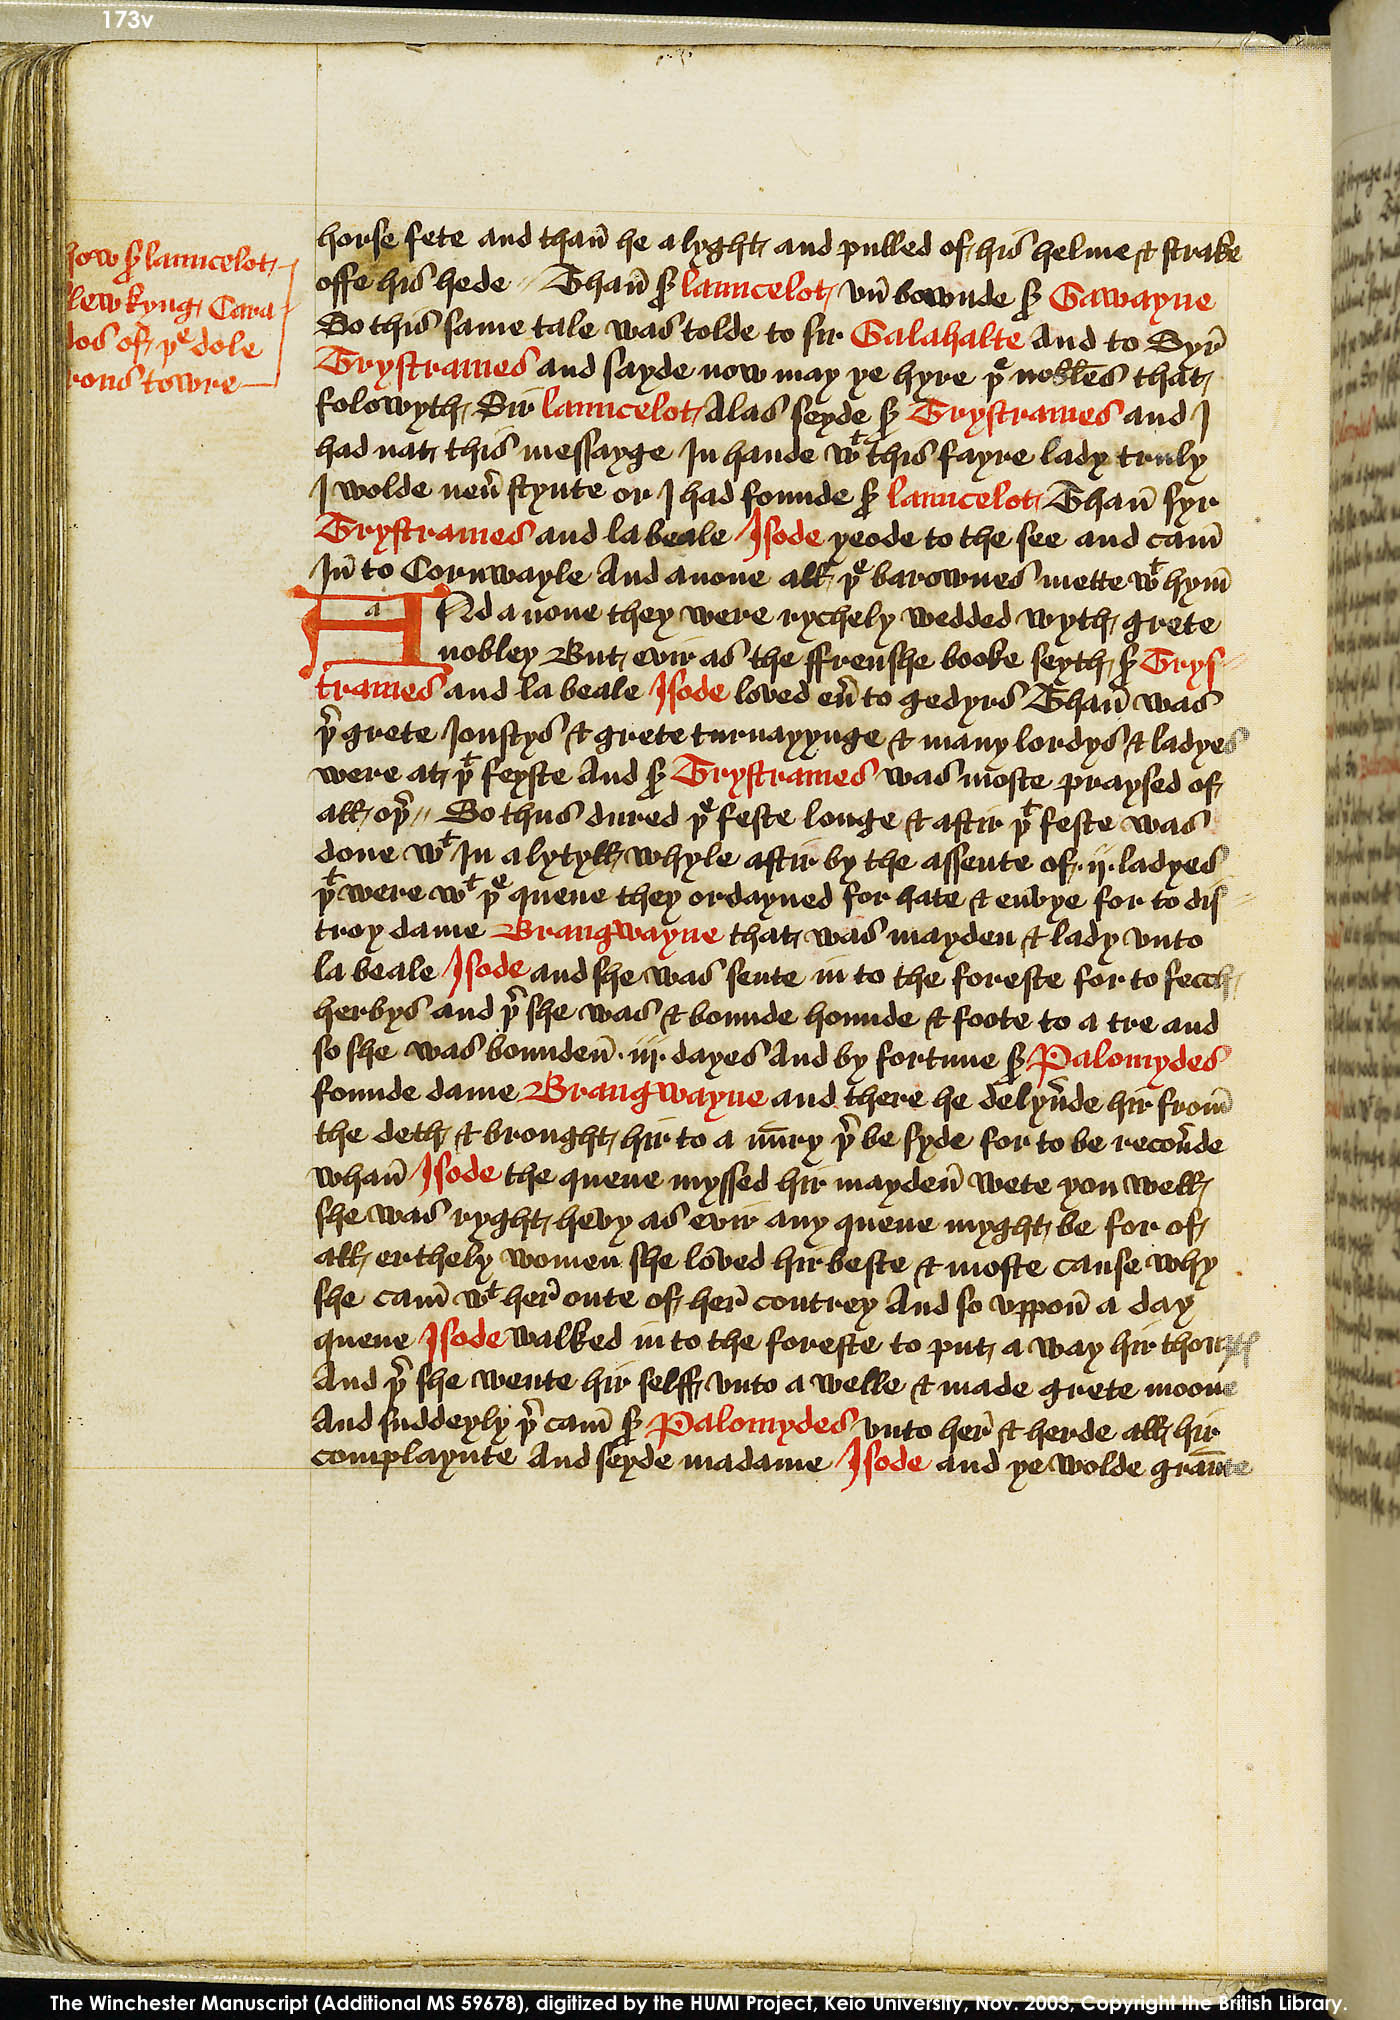 173v
how sʳ launcelot
slew kyng Cara
dos of þᵉ dole
rous towre
horse fete and thañ he a lyght and pulled of his helme & strake
offe his hede // Thañ sʳ launcelot vñ bownde sʳ Gawayne
So this same tale was tolde to sir Galahalte And to Syr̃
Trystrames and sayde now may ye hyre þᵉ nobles that
folowyth Sir launcelot Alas seyde sʳ Trystrames and I
had nat this messayge In hande wᵗ this fayre lady truly
I wolde neũ stynte or I had founde sʳ launcelot Thañ syr
Trystrames and la beale Isode yeode to the see and cam̃
Iñ to Cornwayle And anone all þᵉ barownes mette wᵗ hym̃
a
ANd a none they were rychely wedded wyth grete
nobley But evir as the ffrenshe booke seyth sʳ Trys
trames and la beale Isode loved eũ to gedyrs Thañ was
þʳ grete Joustys & grete turnayynge & many lordys & ladyes
were at þᵗ feyste And sʳ Trystrames was moste praysed of
all oþʳ // So thus dured þᵉ feste longe & aftir þᵗ feste was
done wᵗ In a lytyll whyle aftir by the assente of .ij. ladyes
þᵗ were wᵗ þᵉ quene they ordayned for hate & envye for to dis
troy dame Brangwayne that was mayden & lady vnto
la beale Isode and she was sente in to the foreste for to fecch
herbys and þʳ she was & bounde honnde & foote to a tre and
so she was boundeñ .iij. dayes And by fortune sʳ Palomydes
founde dame Brangwayne and there he delyũde hir from̃
the deth & brought hir to a nũry þʳ be syde for to be recoũde
whañ Isode the quene myssed hir maydeñ wete you well
she was ryght hevy as evir any quene myght be for of
all erthely women she loved hir beste & moste cause why
she cam̃ wᵗ her̃ oute of her̃ contrey And so vppoñ a day
quene Isode walked in to the foreste to put a way hir
And þʳ she wente hir selff vnto a welle & made grete moone
And suddeyly þʳ cam̃ sʳ Palomydes vnto her̃ & herde all hir
complaynte And seyde madame Isode and ye wolde graũte
The Winchester Manuscript (Additional MS 59678), digitized by the HUMI Project, Keio University, Nov. 2003; Copyright the British Library.